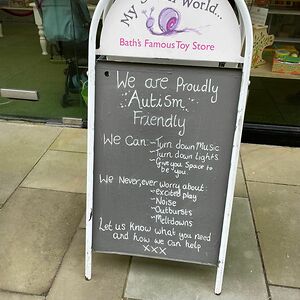 My Small World...
Bath's Famous Toy Store
We are Proudly
Autism
Friendly
We Can: - Turn down Music
- Turn down Lights
- Give you Space to
be you.
We Never, ever worry about:
- excited play
- Noise
- Outbursts
- Meltdowns
Let us know what you need
and how we can help
xxx